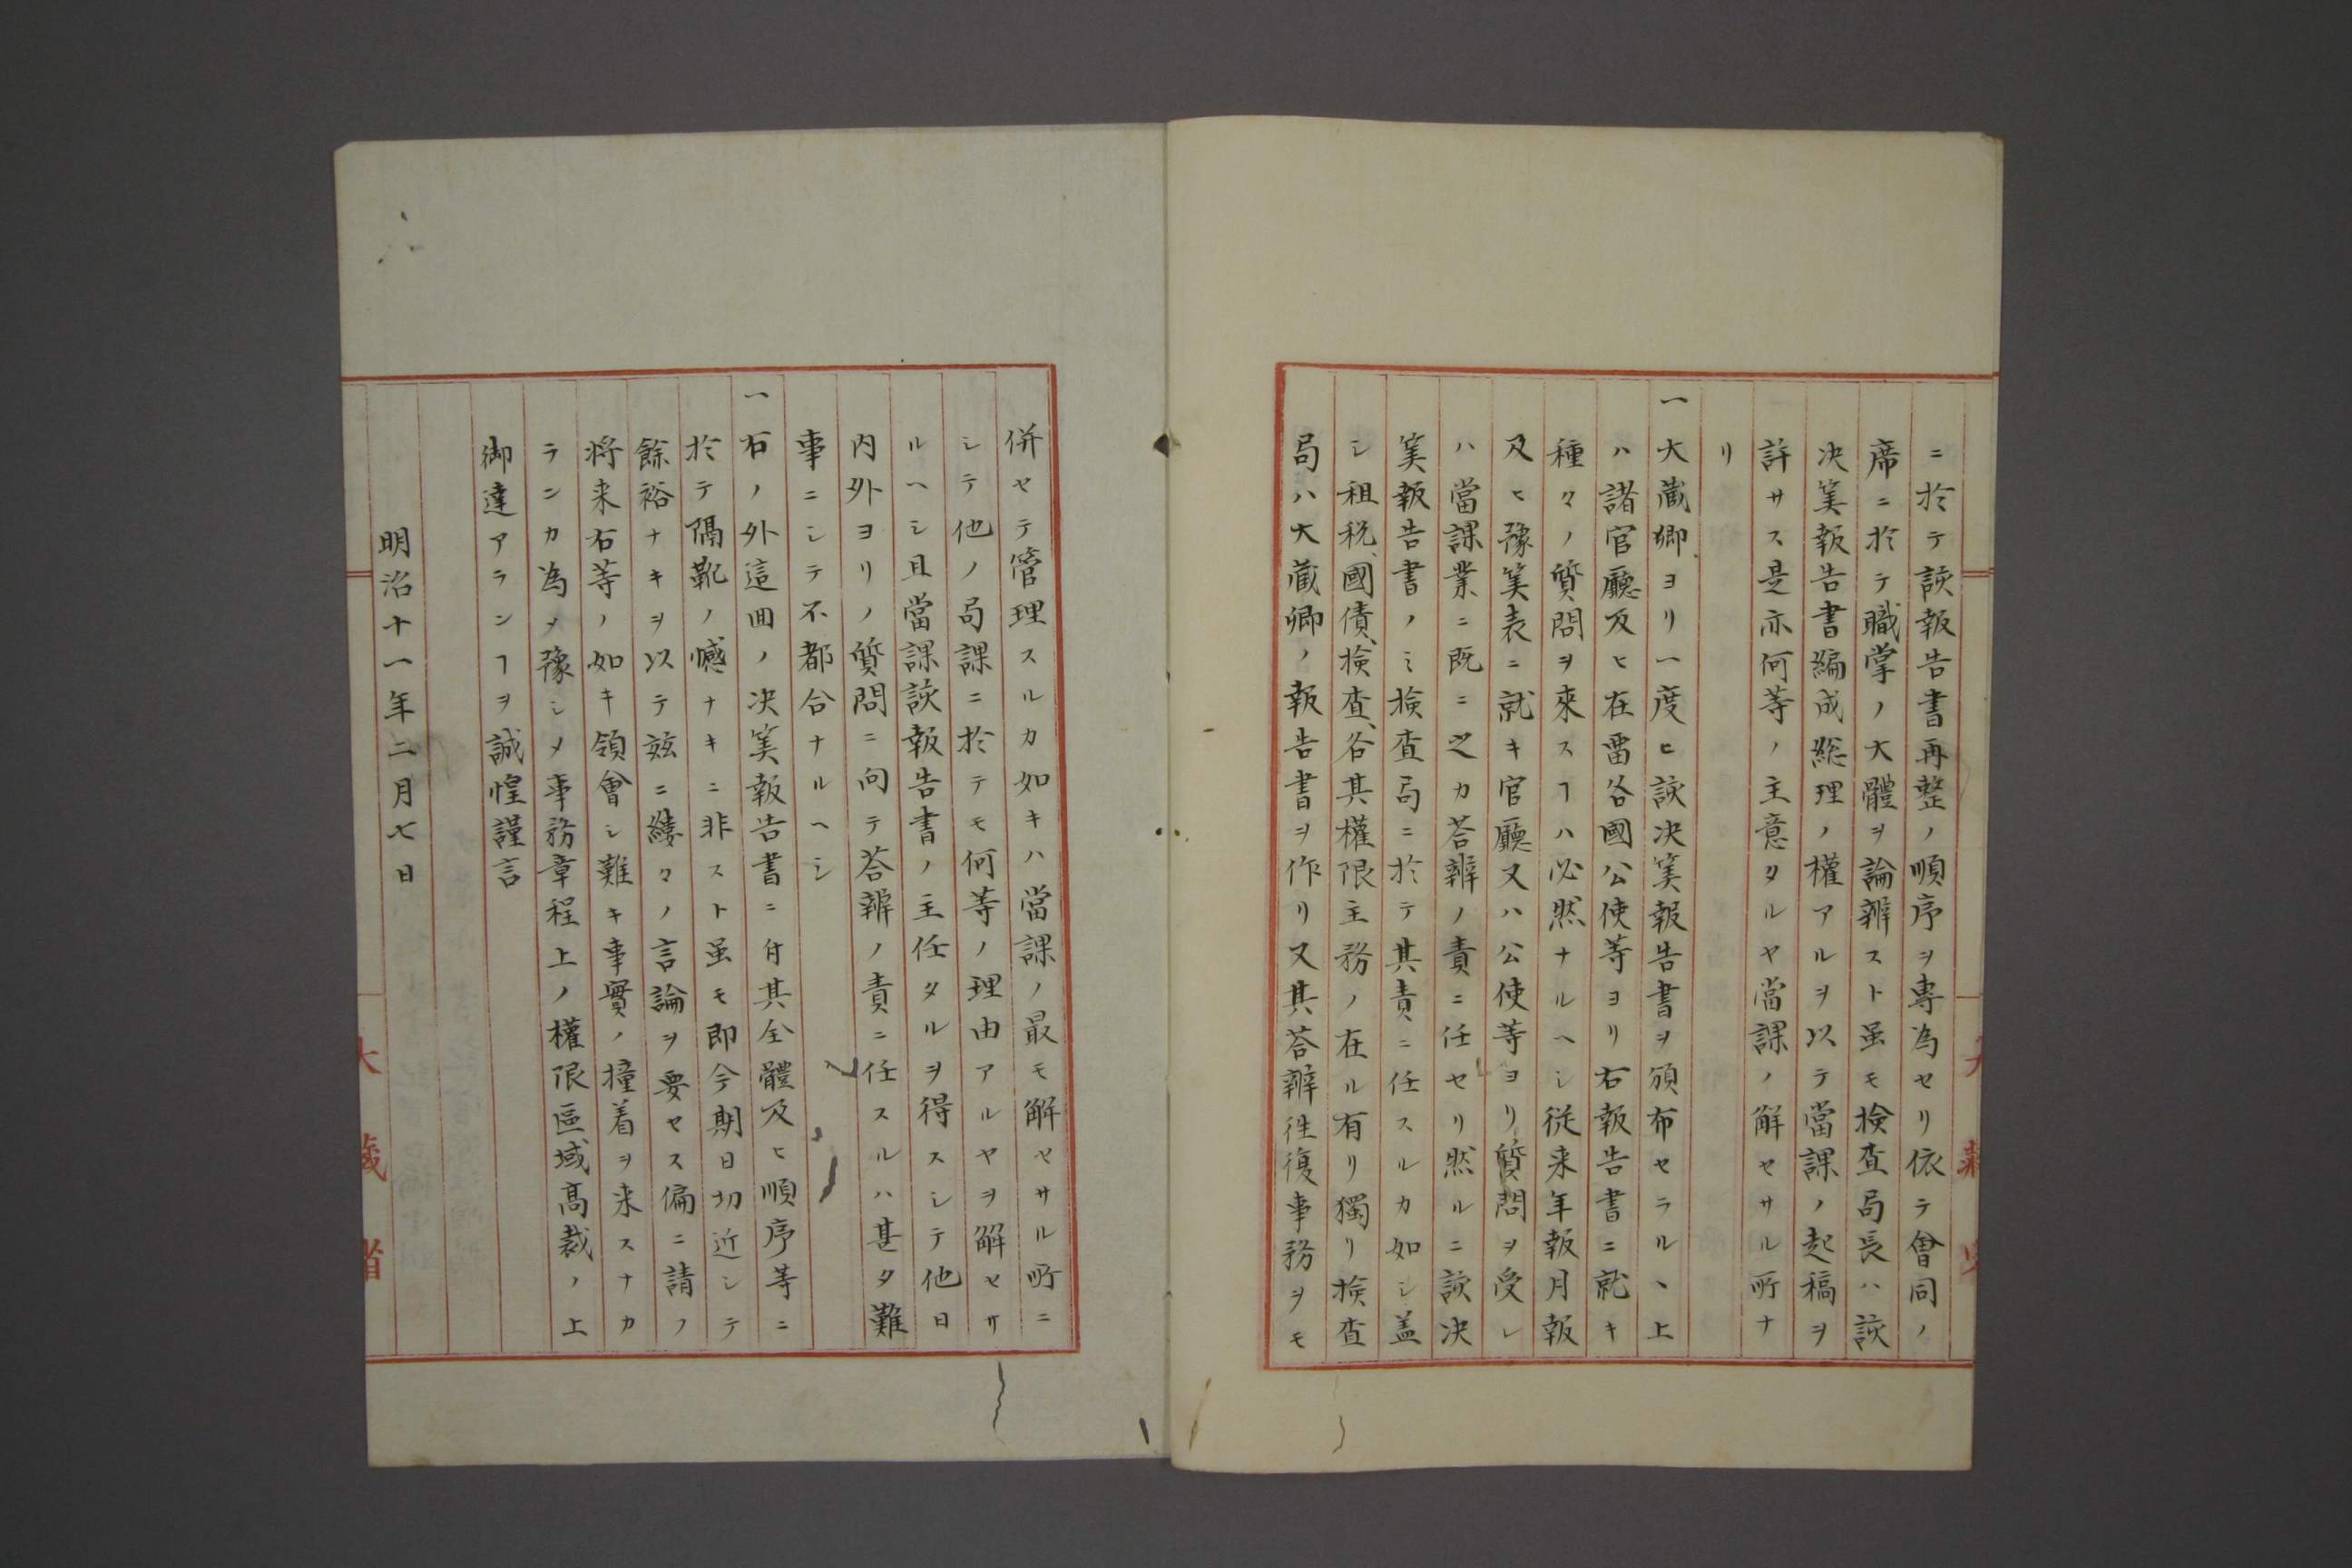 ニ於テ該報告書再整ノ順序ヲ專為セリ依テ會同ノ
席ニ於テ職掌ノ大體ヲ論辨スト虽モ検査局長ハ該
决筭報告書編成総理ノ權アルヲ以テ當課ノ起稿ヲ
許サス是亦何等ノ主意タルヤ當課ノ解セサル所ナ
リ
一大蔵卿ヨリ一度ヒ該决筭報告書ヲ頒布セラル丶上
ハ諸官廳及ヒ在畱各國公使等ヨリ右報告書ニ就キ
種々ノ質問ヲ來スヿハ必然ナルヘシ従来年報月報
及ヒ豫筭表ニ就キ官廳又ハ公使等ヨリ質問ヲ受レ
ハ當課業ニ既ニ之カ荅辨ノ責ニ任セリ然ルニ該决
筭報告書ノミ検査局ニ於テ其責ニ任スルカ如シ盖
シ租税、國債、検査、各其權限主務ノ在ル有リ獨リ検査
局ハ大蔵卿ノ報告書ヲ作リ又其荅辨往復事務ヲモ
併セテ管理スルカ如キハ當課ノ最モ解セサル所ニ
シテ他ノ局課ニ於テモ何等ノ理由アルヤヲ解セサ
ルヘシ且當課該報告書ノ主任タルヲ得スシテ他日
内外ヨリノ質問ニ向テ荅辨ノ責ニ任スルハ甚タ難
事ニシテ不都合ナルヘシ
一右ノ外這囬ノ决筭報告書ニ付其全體及ヒ順序等ニ
於テ隔靴ノ憾ナキニ非スト虽モ即今期日切近シテ
餘裕ナキヲ以テ玆ニ縷々ノ言論ヲ要セス偏ニ請フ
将来右等ノ如キ領會シ難キ事實ノ撞着ヲ来スナカ
ランカ為メ豫シメ事務章程上ノ權限區域髙裁ノ上
御達アランヿヲ誠惶謹言
明治十一年二月七日
大藏省